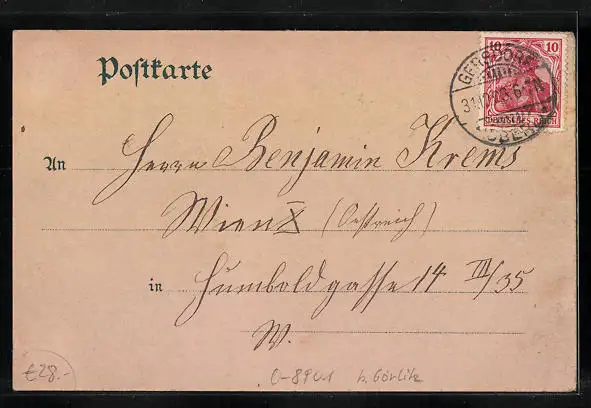 Postkarte
10 10
DEUTSCHES REICH
GERSDORF
An Herrn Benjamin Krems
Wien X (Oestreich)
in Humboldgasse 14 III/35
W.
€28.- O-8901 b. Görlitz